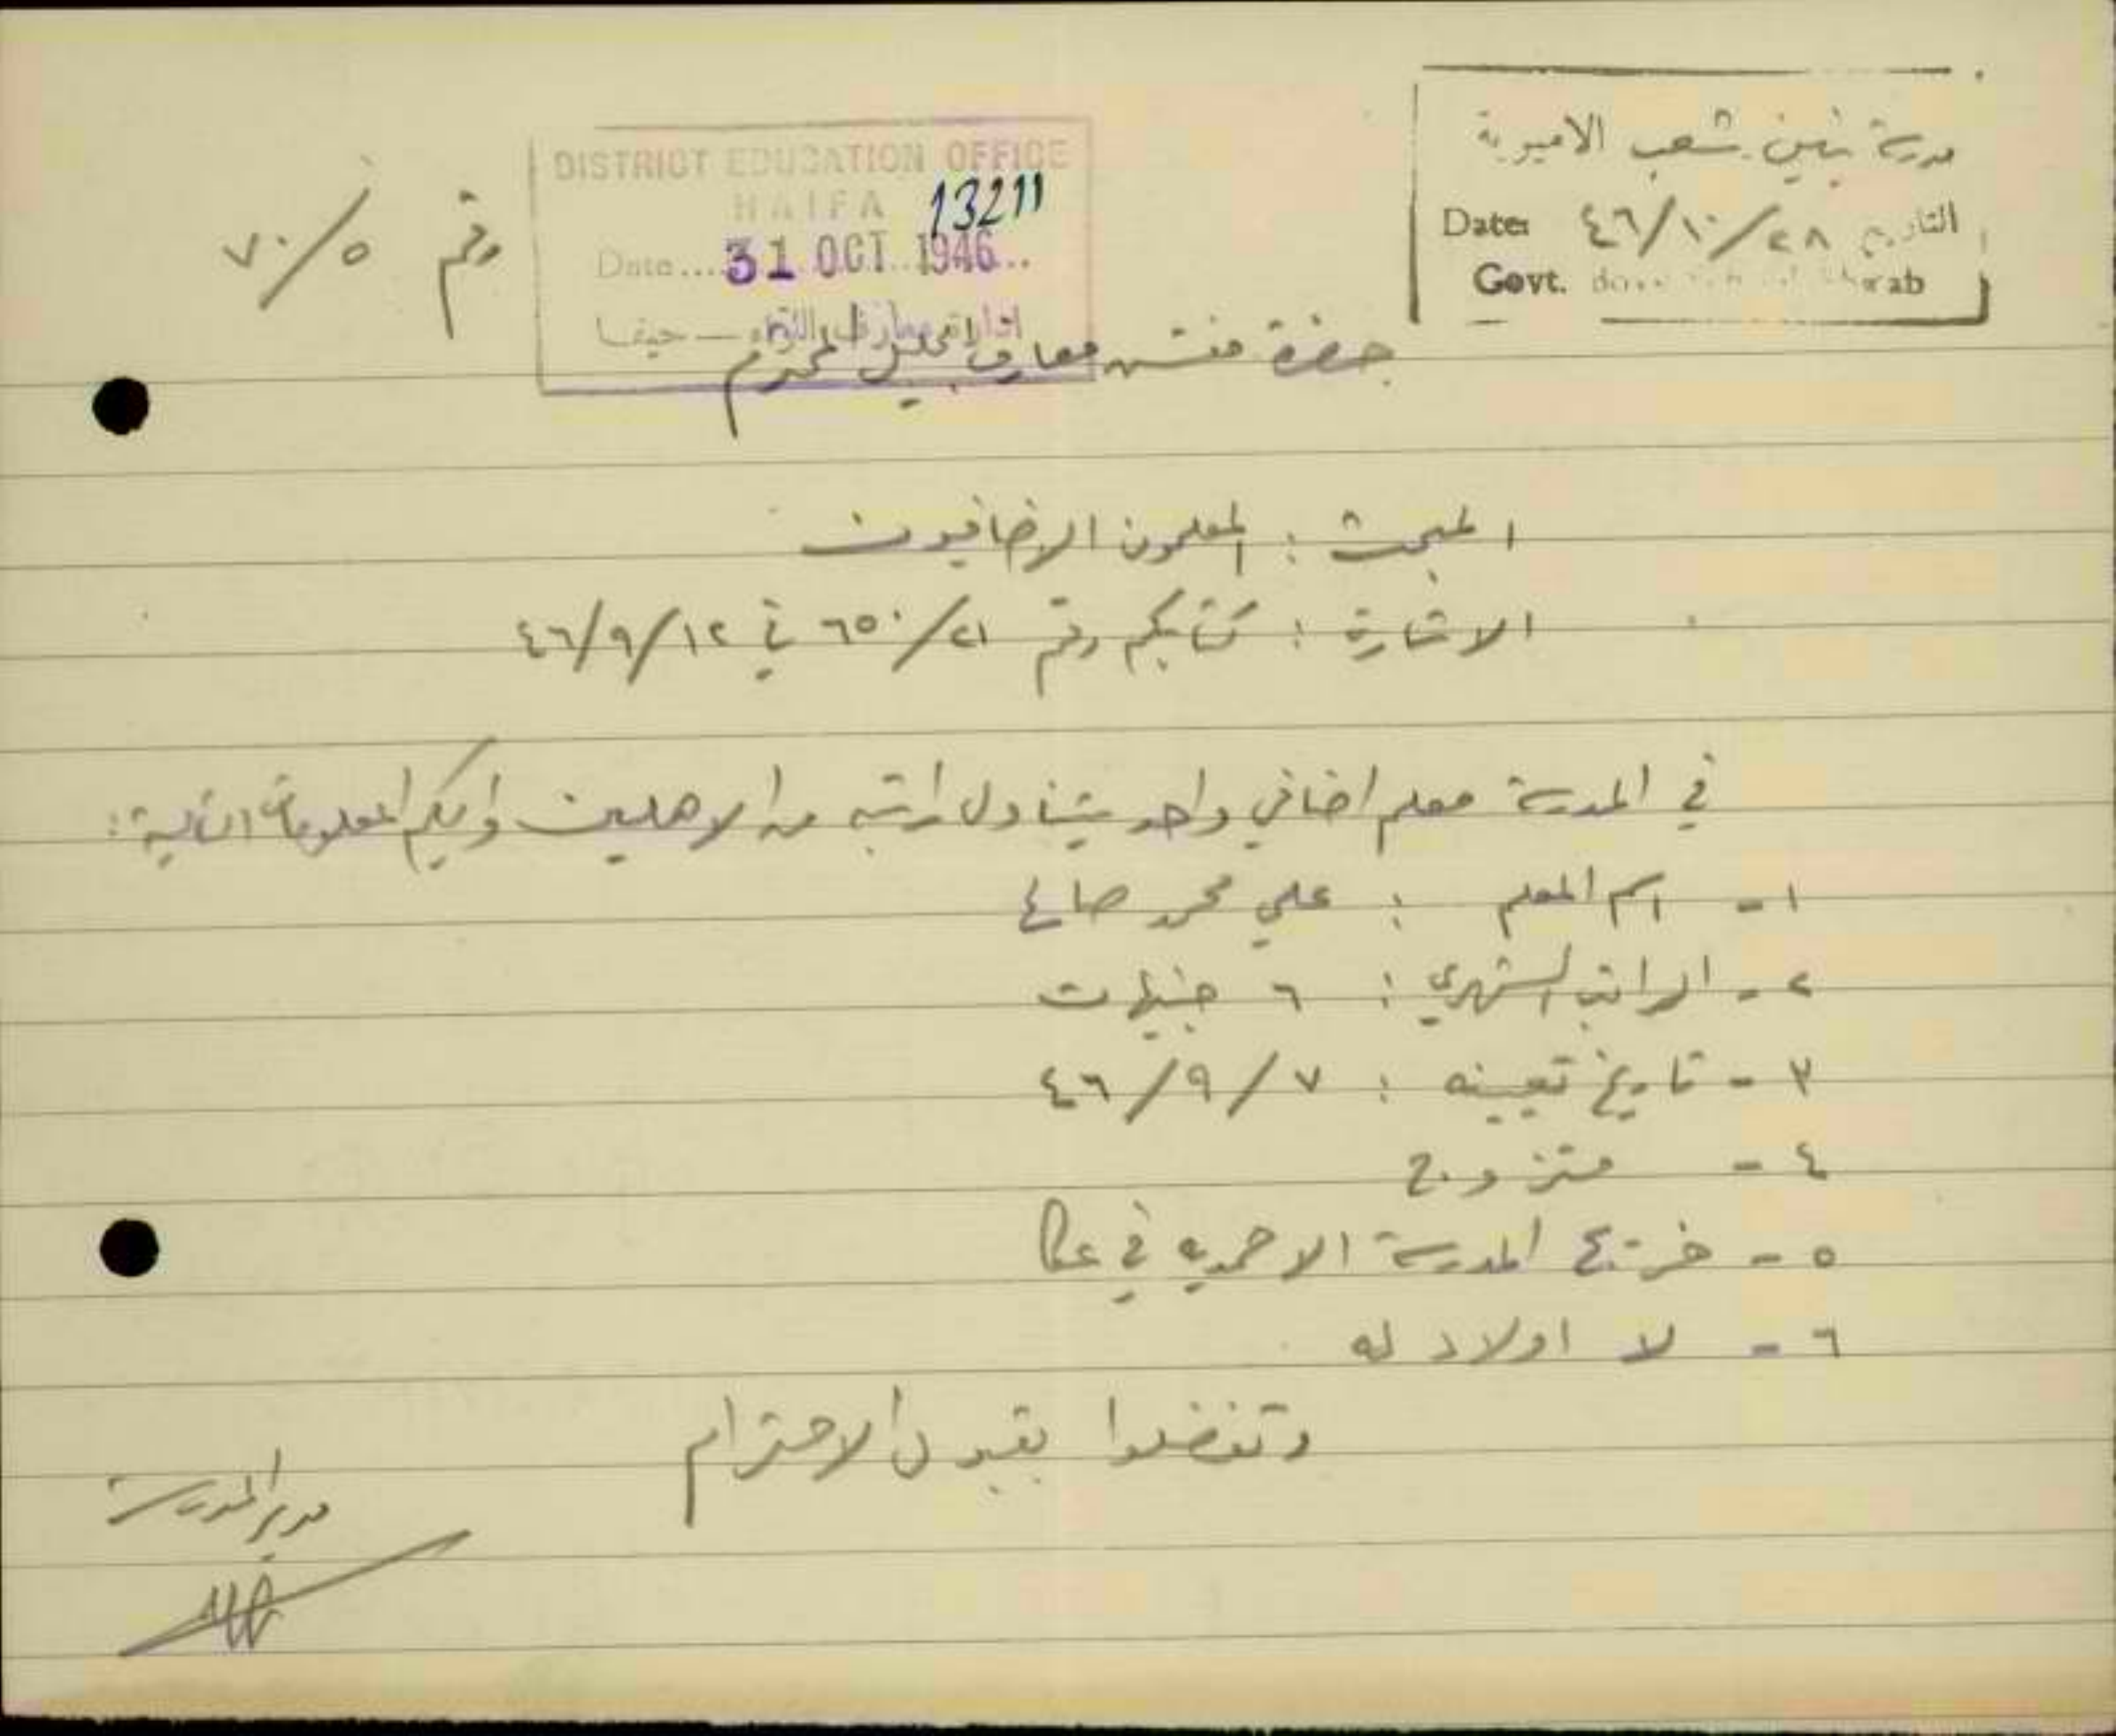 مدرسة بنين شعب الاميرية
التاريخ ٤٦/١٠/٢٨ Date:
Govt. Boys School Sha'ab
DISTRICT EDUCATION OFFICE
HAIFA 13211
Date.... 31 OCT 1946...
ادارة معارف اللواء — حيفا
رقم ٧٠/٥
حضرة مفتش معارف الجليل المحترم
المبحث : المعلمون الاضافيون
الاشارة : كتابكم رقم ٦٥٠/٢١ في ٤٦/٩/١٢
في المدرسة معلم اضافي واحد يتناول راتبه من الاهلين واليكم المعلومات التالية :
١ - اسم المعلم : علي محمد صالح
٢ - الراتب الشهري : ٦ جنيهات
٣ - تاريخ تعيينه : ٤٦/٩/٧
٤ - متزوج
٥ - خريج المدرسة الاحمدية في عكا
٦ - لا اولاد له
وتفضلوا بقبول الاحترام
مدير المدرسة